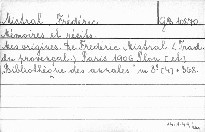 Mistral Frédéric. Gb 4870.
Mémoires et récits.
Mes origines. De Frederic Mistral (Trad.
du provençal.) Paris 1906 Plon [et]
Bibliothèque des annales in 8° (4) + 368.